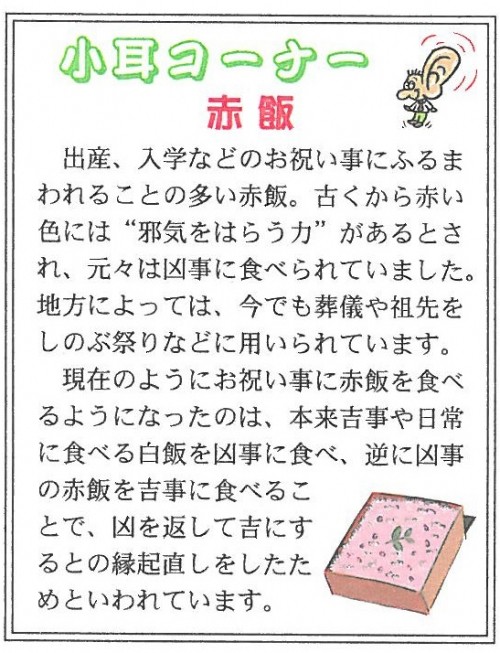 小耳コーナー
赤飯
出産、入学などのお祝い事にふるま
われることの多い赤飯。古くから赤い
色には“邪気をはらう力”があるとさ
れ、元々は凶事に食べられていました。
地方によっては、今でも葬儀や祖先を
しのぶ祭りなどに用いられています。
現在のようにお祝い事に赤飯を食べ
るようになったのは、本来吉事や日常
に食べる白飯を凶事に食べ、逆に凶事
の赤飯を吉事に食べるこ
とで、凶を返して吉にす
るとの縁起直しをしたた
めといわれています。